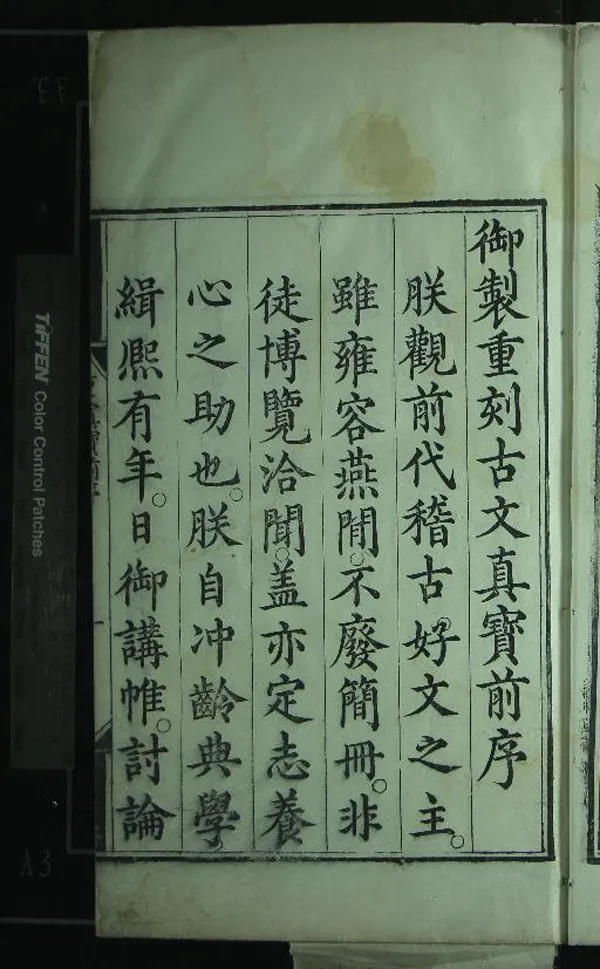 御製重刻古文真寶前序
朕觀前代稽古好文之主。
雖雍容燕閒。不廢簡冊。非
徒博覽洽聞。盖亦定志養
心之助也。朕自冲齡典學
緝熙有年。日御講帷。討論
TIFFEN Color Control Patches
A3
A3